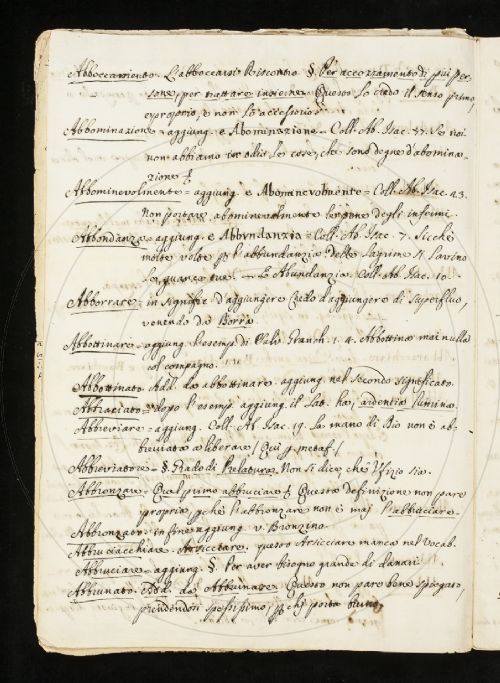 Abboccamento. L'abboccarsi Riscontro. §. Per accozzamento di più per-
sone, per trattare insieme. Questo lo credo il senso primo,
e proprio, e non lo accessorio.
Abbominazione = aggiung. e Abominazione = Coll. Ab. Isac. 37. Se noi
non abbiamo in odio le cose, che sono degne d'abomina-
zione
Abbominevolmente = aggiung. e Abominevolmente = Coll. Ab. Isac. 43.
Non portare abominevolmente degli infermi.
Abbondanza = aggiung. e Abbundanzia = Coll. Ab. Isac. 7. Sicchè
molte volte l'abbundanzia delle
— E Abundanzia. Coll. Ab. Isac. 10.
Abborrare = in signific. d'aggiungere Credo d'aggiungere di superfluo,
venendo da Borra.
Abbottinare = aggiung. l'esemp. di 1. 4. Abbottina mai nulla
col compagno.
Abbottinato. Add. da abbottinare. aggiung. nel secondo significato.
Abbraciato = dopo l'esemp. aggiung. il Lat. ha, ardentia lumina.
Abbreviare = aggiung. Coll. Ab. Isac. 19. La mano di Dio non è ab-
breviata a liberare / Qui metaf. /
Abbreviatore = §. Grado di Prelatura. Non si dice, che Ufizio sia.
Abbronzare = Quel primo abbruciare Questa definizione non pare
propria, perchè l'abbronzare non è mai l'abbruciare.
Abbronzato = in fine aggiung. v. Bronzino.
Abbruciacchiare. Arsicciare. questo Arsicciare manca nel Vocab.
Abbruciare = aggiung. §. Per aver bisogno grande di danari.
Abbrunato. Add. da Abbrunare. Questo non pare bene spiegato,
prendendosi spessissimo, per chi porta bruno.